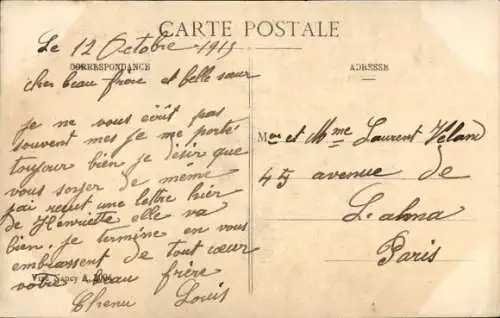 CARTE POSTALE
Le 12 Octobre 1915
CORRESPONDANCE
cher beau frère et belle sœur
je ne vous écrit pas
souvent mes je me porte
toujour bien je désir que
vous soyer de meme
j'ai reçut une lettre hier
de Henriette elle va
bien. je termine en vous
embrassent de tout cœur
votre beau frère
Chenu Louis
Nancy
ADRESSE
Mr et Mme Laurent
45 avenue de
L'alma
Paris